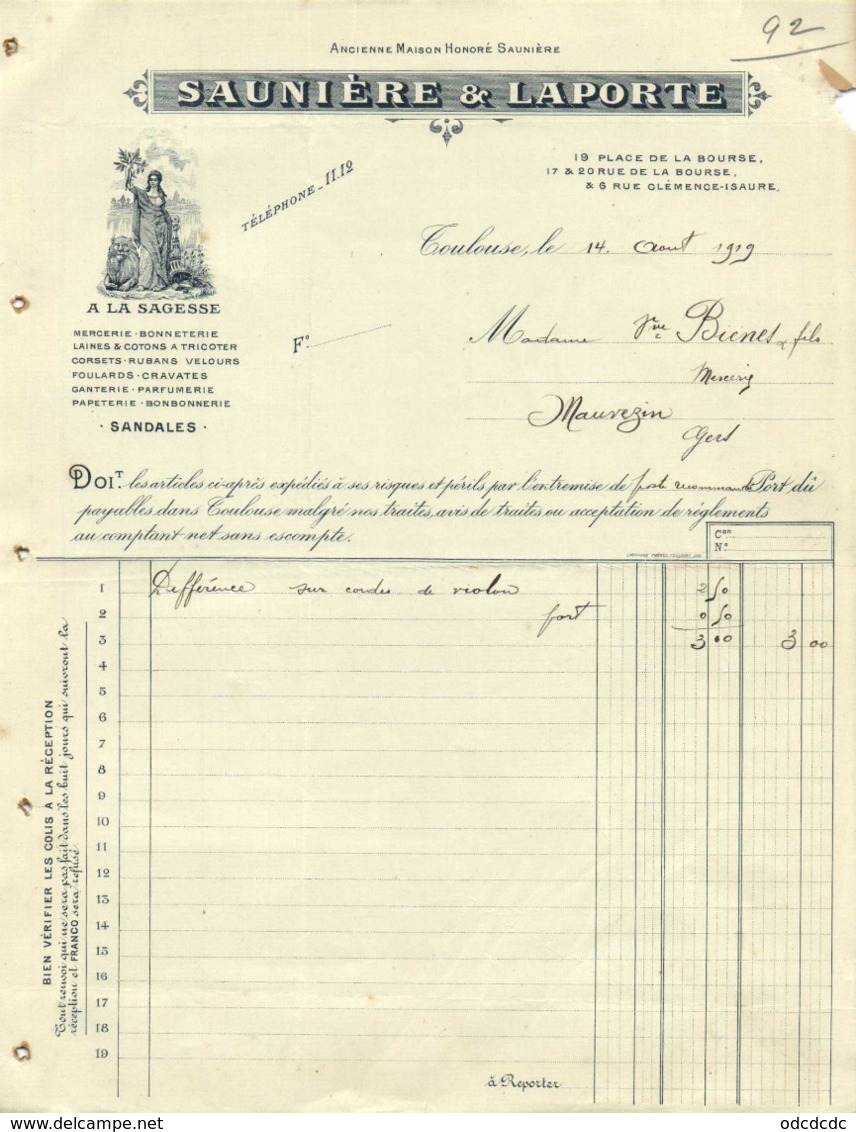 92
ANCIENNE MAISON HONORÉ SAUNIÈRE
SAUNIÈRE & LAPORTE
19 PLACE DE LA BOURSE,
17 & 20 RUE DE LA BOURSE,
& 6 RUE CLÉMENCE-ISAURE.
TÉLÉPHONE _ 11.12
Toulouse, le 14. Aout 1919
A LA SAGESSE
MERCERIE · BONNETERIE
LAINES & COTONS A TRICOTER
CORSETS · RUBANS VELOURS
FOULARDS · CRAVATES
GANTERIE · PARFUMERIE
PAPETERIE · BONBONNERIE
· SANDALES ·
F°.
Madame Vve Bienes & fils
Mercerie
Mauvezin
Gers
DOIT. les articles ci-après expédiés à ses risques et périls par l'entremise de poste recommandé Port dû
payables dans Toulouse malgré nos traites, avis de traites ou acceptation de règlements
au comptant net sans escompte.
Con
N°.
1 Différence sur cordes de violon 2 50
2 port 0 50
3 3 00 3 00
4
5
6
7
8
9
10
11
12
13
14
15
16
17
18
19
à Reporter
BIEN VÉRIFIER LES COLIS A LA RÉCEPTION
Tout renvoi qui ne sera pas fait dans les huit jours qui suivront la
réception et FRANCO sera refusé
Delcampe.net
odcdcdc